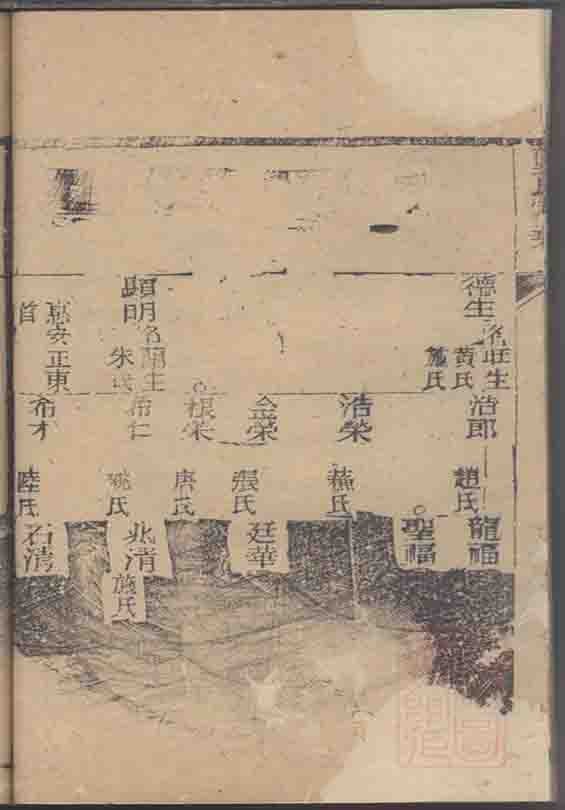 德生
名旺生
黃氏
施氏
顯明
名蘭生
朱氏
正東
浩郎
趙氏
浩榮
蘇氏
金榮
張氏
根榮
唐氏
希仁
姚氏
希才
陸氏
龍福
聖福
廷華
兆清
施氏
石清